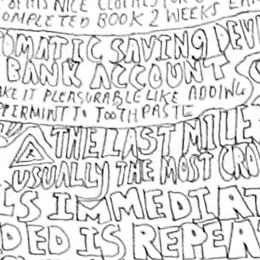 OF HIS NICE CLOTHES FOR
OMPLETED BOOK 2 WEEKS EA
OMATIC SAVING DEVI
BANK ACCOUNT
AKE IT PLEASURABLE LIKE ADDING
PERMINT TO TOOTHPASTE
THE LAST MILE
USUALLY THE MOST CRO
LS IMMEDIAT
DED IS REPEA